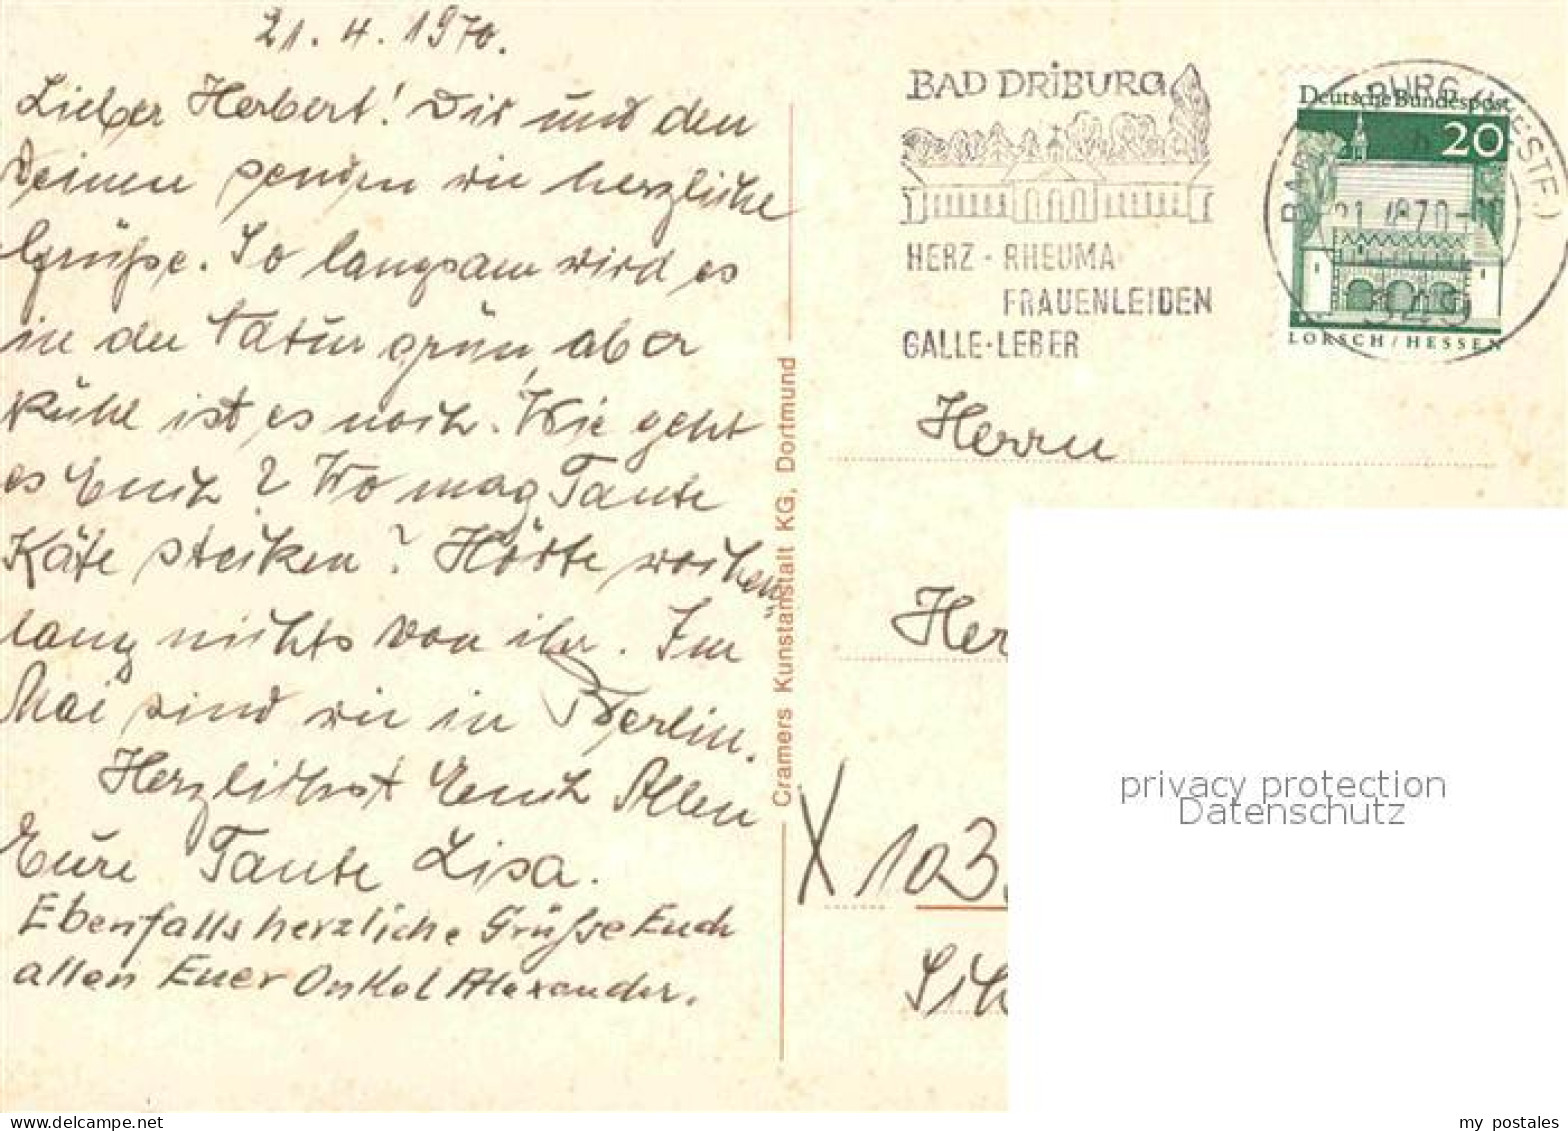 21. 4. 1970.
Lieber Herbert! Dir und den
Deinen senden wir herzliche
Grüße. So langsam wird es
in der Natur grün, aber
kühl ist es noch. Wie geht
es Euch? Wo mag Tante
Käte stecken? Hörte wochen-
lang nichts von ihr. Im
Mai sind wir in Berlin.
Herzlichst Euch Allen
Eure Tante Lisa.
Ebenfalls herzliche Grüße Euch
allen Euer Onkel Alexander.
Cramers Kunstanstalt KG, Dortmund
BAD DRIBURG
HERZ - RHEUMA
FRAUENLEIDEN
GALLE-LEBER
Deutsche Bundespost
20
LORSCH/HESSEN
Herrn
Her
X 103
privacy protection
Datenschutz
my postales